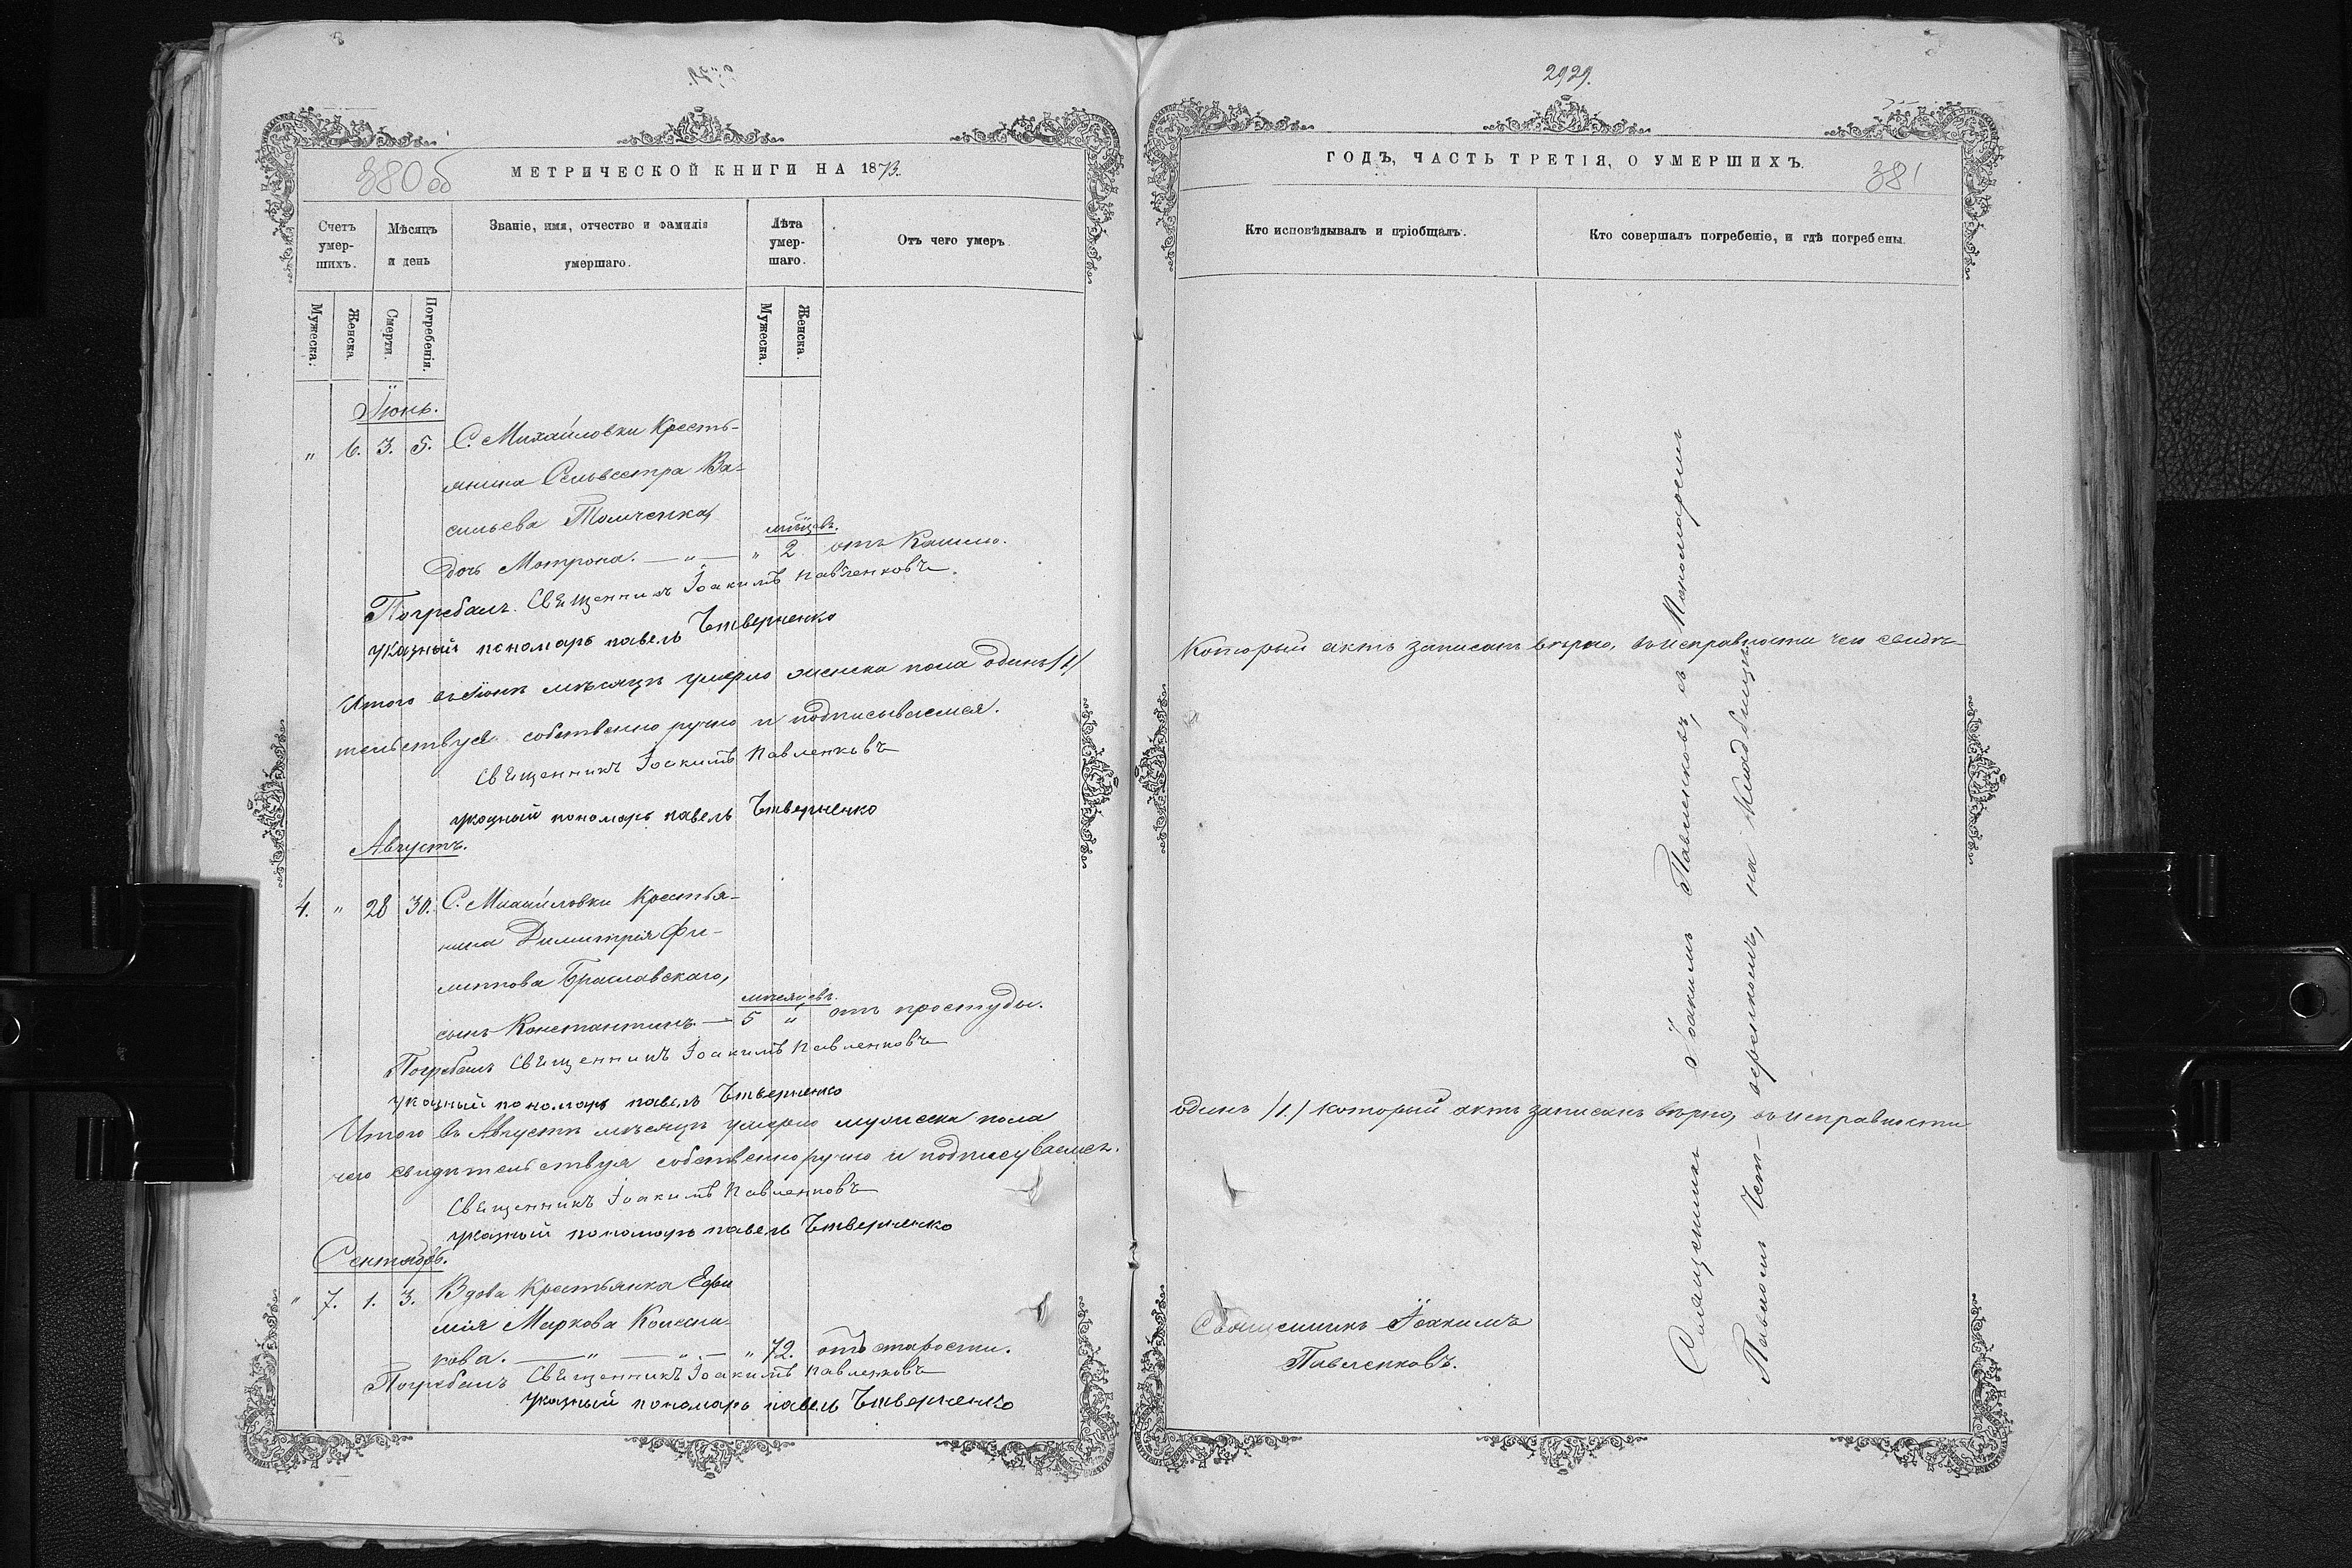 380 об
МЕТРИЧЕСКОЙ КНИГИ НА 1873.
Счетъ умер-шихъ.
Мѣсяцъ и день
Званіе, имя, отчество и фамилія умершаго.
Лѣта умер-шаго.
Отъ чего умеръ
Мужеска.
Женска.
Смерти.
Погребенія.
Мужеска.
Женска.
Іюнь.
" 6. 3. 5. С. Михайловки Кресть-
янина Сельвестра Ва-
сильева Толмченка,
мѣсяцевъ.
дочь Мотрона. — " — " 2 отъ Кашлю.
Погребалъ Священникъ Іоакимъ Павленковъ
указный пономарь павелъ Четверненко
Итого въ Іюнѣ мѣсяцѣ умерло женска пола одинъ /1/
тельствуя собственно ручно и подписываемся.
Священникъ Іоакимъ Павленковъ
указный пономарь павелъ Четверненко
Августъ.
4. " 28 30. С. Михайловки Крестья-
нина Димитрія Фи-
липпова Браславскаго,
мѣсяцевъ.
сынъ Константинъ — 5 " отъ простуды.
Погребалъ Священникъ Іоакимъ Павленковъ
указный пономарь павелъ Четверненко
Итого въ Августѣ мѣсяцѣ умерло мужеска пола
чего свидѣтельствуя собственноручно и подписуваемся.
Священникъ Іоакимъ Павленковъ
указный пономарь павелъ Четверненко
Сентябрь.
" 7. 1. 3. Вдова Крестьянка Ефи
мія Маркова Колесни-
кова. — " — " — " 72. отъ старости.
Погребалъ Священникъ Іоакимъ Павленковъ
Указный пономарь павелъ Четверненко
2929.
ГОДЪ, ЧАСТЬ ТРЕТІЯ, О УМЕРШИХЪ.
381
Кто исповѣдывалъ и пріобщалъ.
Кто совершалъ погребеніе, и гдѣ погребены.
Который актъ записанъ вѣрно, въ исправности чего свидѣ-
одинъ /1./ который актъ записанъ вѣрно, въ исправности
Священникъ Іоакимъ
Павленковъ.
Священникъ Іоакимъ Павленковъ, съ Пономаремъ
Павломъ Чет- верненкомъ, на Кладбищѣ.